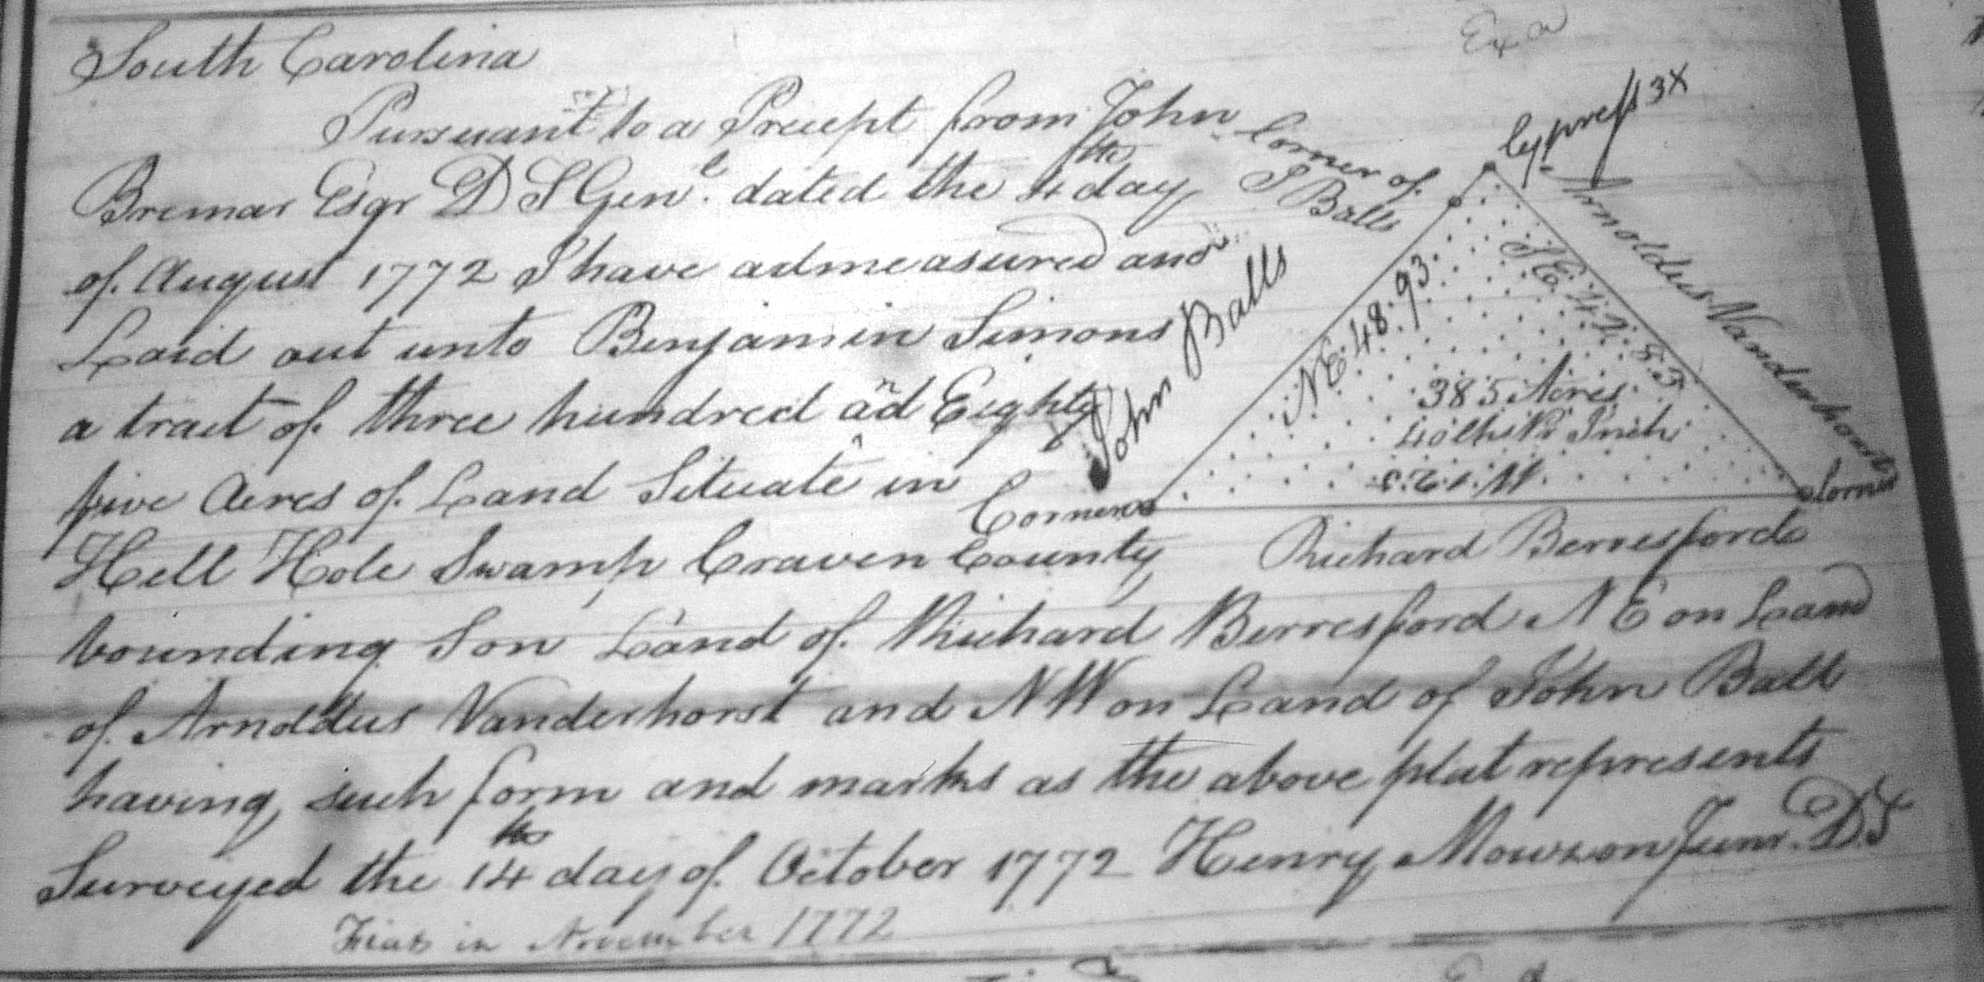 South Carolina
Exa
Pursuant to a Precept from John
Bremar Esqr D S Genl. dated the 4th day
of August 1772 I have admeasured and
Laid out unto Benjamin Simons
a tract of three hundred and Eighty
five Acres of Land Situate in
Hell Hole Swamp Craven County
bounding S on Land of Richard Berresford N E on Land
of Arnoldus Vanderhorst and N W on Land of John Ball
having such form and marks as the above plat represents
Surveyed the 14th day of October 1772 Henry Mouzon Junr. D. S
in November 1772
Cypress 3X
Corner of
J Balls
John Balls
Arnoldus Vanderhorst
NE. 48. 93.
S E. 42
385 Acres
40 Chs Pr Inch
Corner
Corner
Richard Berresfords